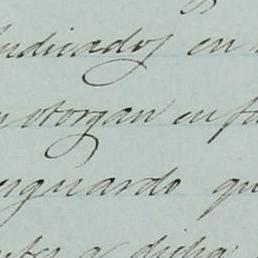 indicados en
otorgan en fa
sguardo qu
dicha